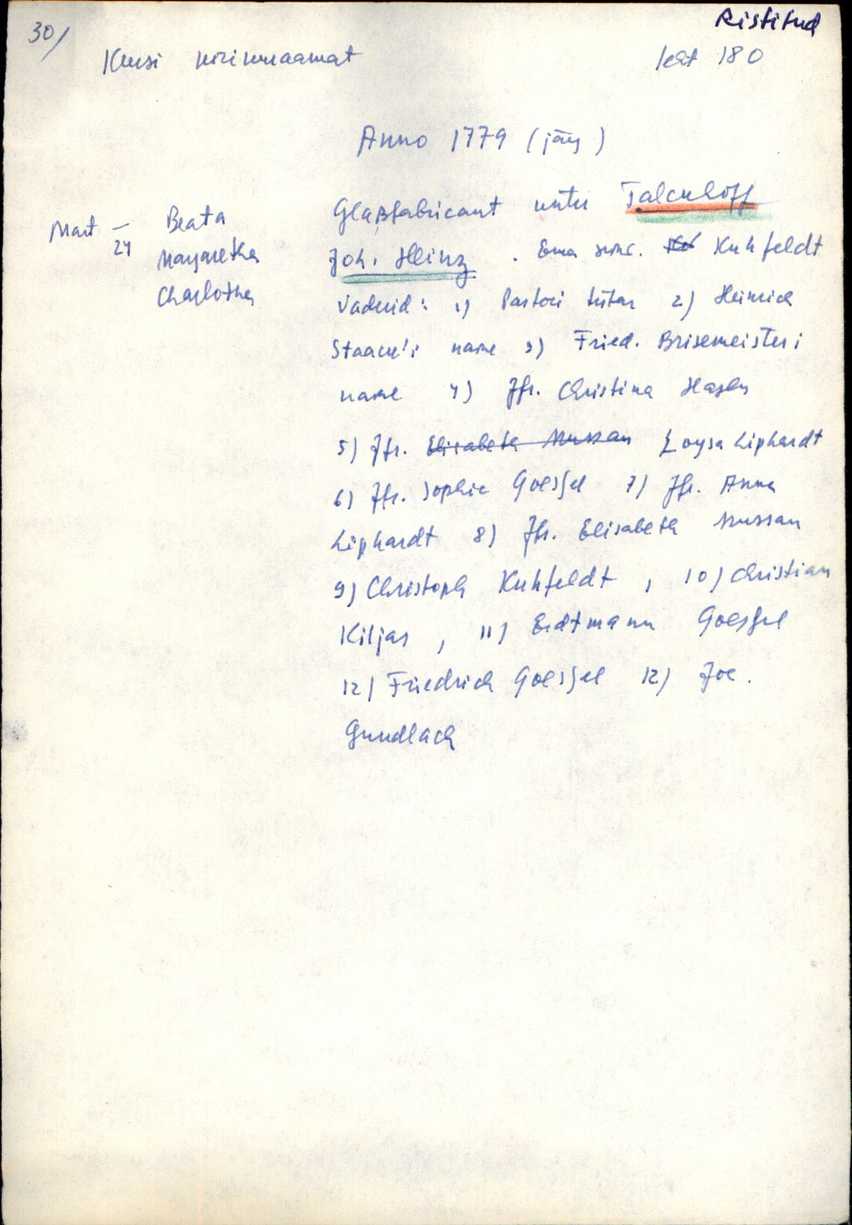 30/
Ristitud
Kursi kirikuraamat
leht 180
Anno 1779 (järg)
Mart – 24
Beata
Margaretha
Charlotha
Glaßfabricant unter Talckhoff
Joh. Heinz. Ema sünd. Kuhfeldt
Vaderid: 1) Pastori tütar 2) Heinrich
Staack'i naine 3) Fried. Brisemeisteri
naine 4) Jfr. Christina Hagen
5) Jfr. Elisabeth Mussan Loysa Liphardt
6) Jfr. Sophie Goessel 7) Jfr. Anna
Liphardt 8) Jfr. Elisabeth Mussan
9) Christoph Kuhfeldt, 10) Christian
Kiljas, 11) Erdtmann Goessel
12) Friedrich Goessel 12) Joe.
Gundlach